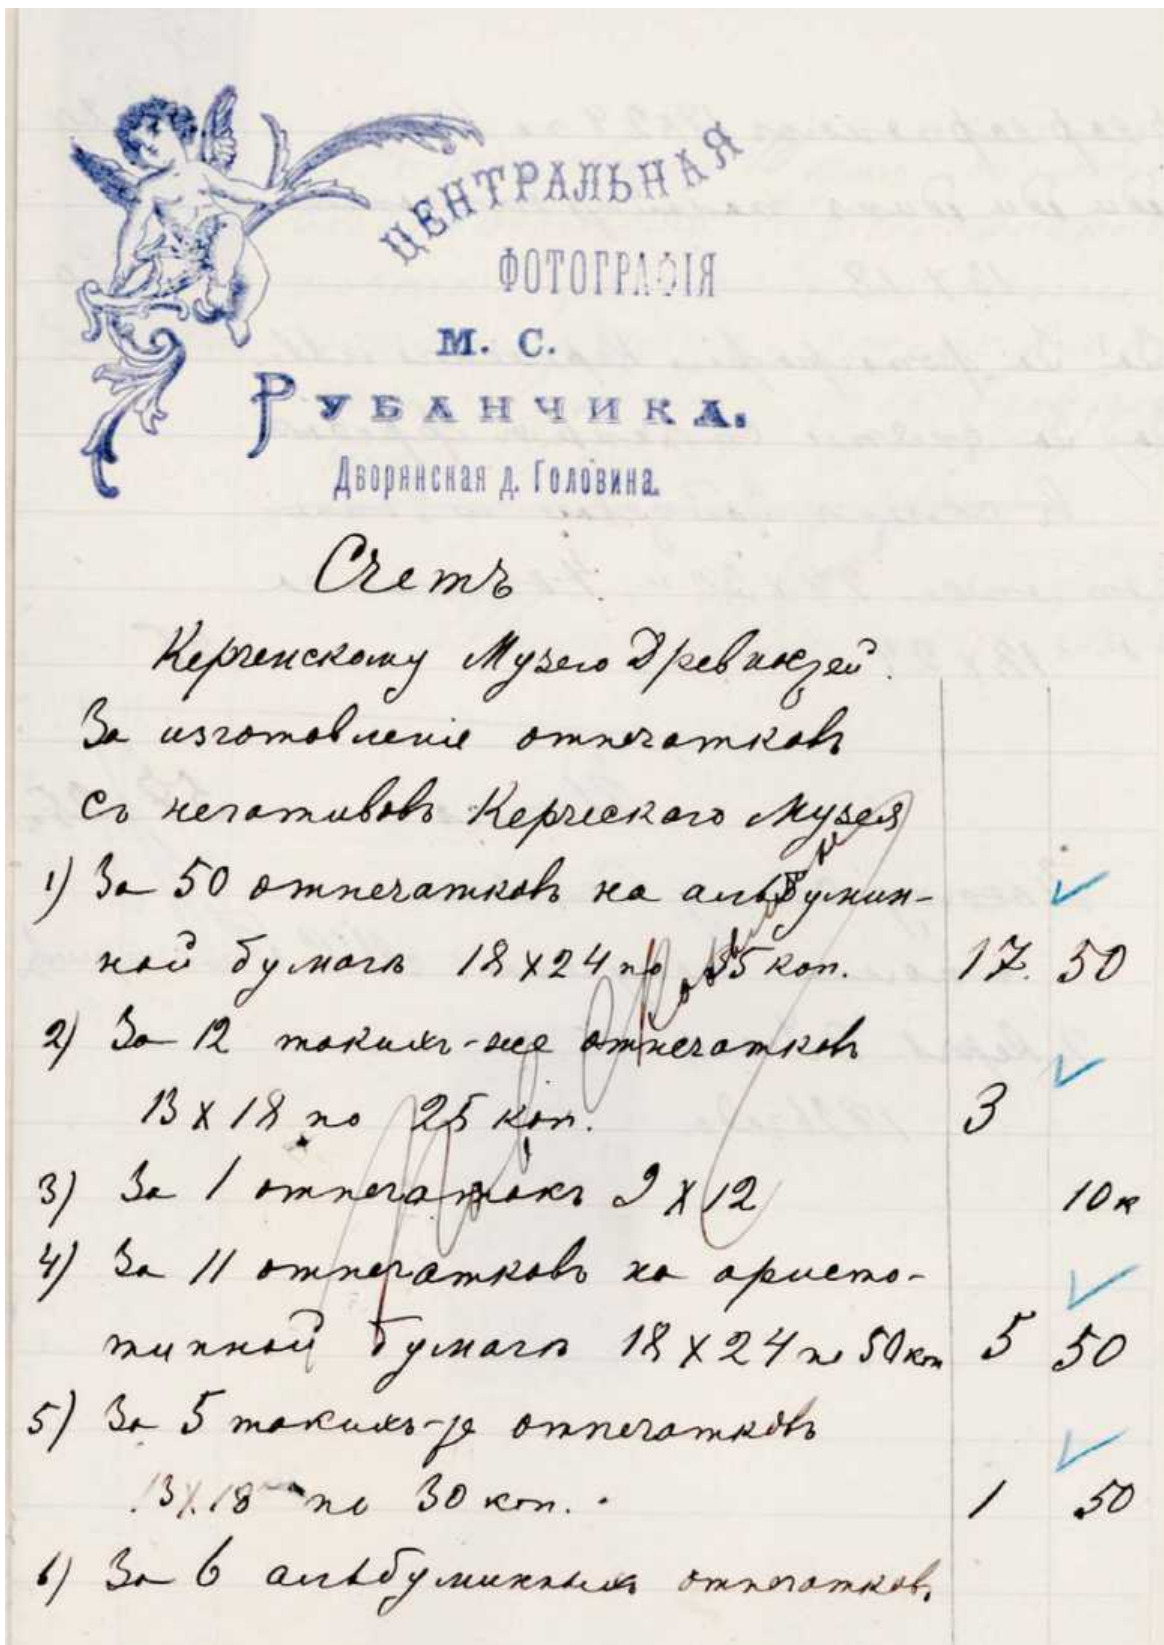 ЦЕНТРАЛЬНАЯ
ФОТОГРАФІЯ
М. С.
РУБАНЧИКА.
Дворянская д. Головина.
Счетъ
Керченскому Музею Древностей.
За изготовленіе отпечатковъ
съ негативовъ Керческаго Музея
1) За 50 отпечатковъ на альбумин-
ной бумагѣ 18 X 24 по 35 коп. 17. 50
2) За 12 такихъ-же отпечатковъ
13 X 18 по 25 коп. 3
3) За 1 отпечатокъ 9 X 12 10 к
4) За 11 отпечатковъ на аристо-
типной бумагѣ 18 X 24 по 50 коп 5 50
5) За 5 такихъ-же отпечатковъ
13 X 18 по 30 коп. 1 50
6) За 6 альбуминныхъ отпечатковъ